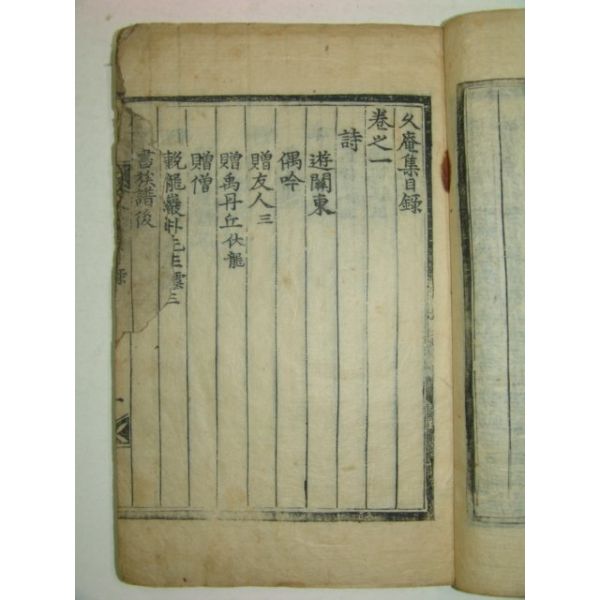 久庵集目錄
卷之一
詩
遊關東
偶吟
贈友人三
贈禹丹丘伏龍
贈僧
輓龍巖朴先生雲三
書族譜後